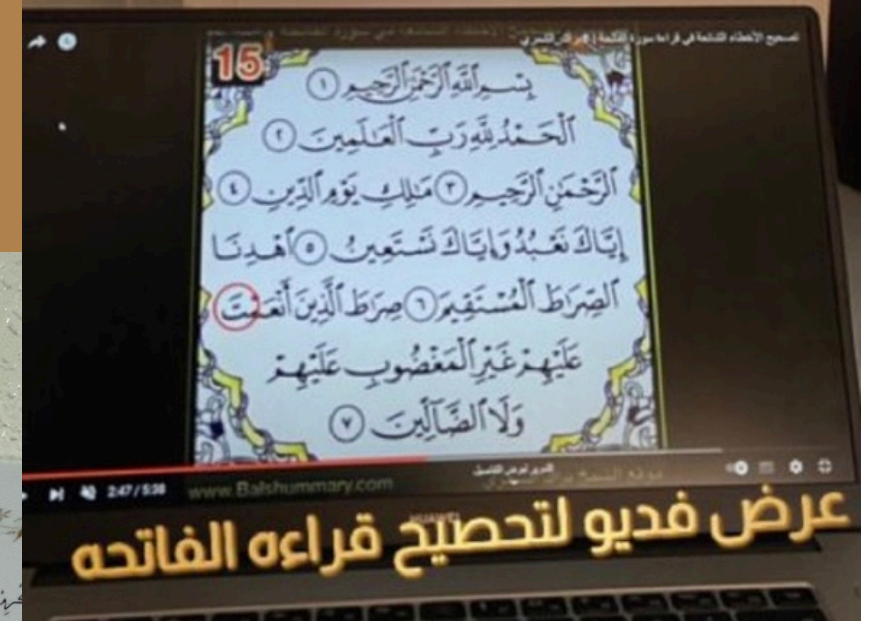 تصحيح الأخطاء الشائعة في قراءة سورة الفاتحة
15
بِسْمِ ٱللَّهِ ٱلرَّحْمَٰنِ ٱلرَّحِيمِ ١
ٱلْحَمْدُ لِلَّهِ رَبِّ ٱلْعَٰلَمِينَ ٢
ٱلرَّحْمَٰنِ ٱلرَّحِيمِ ٣ مَٰلِكِ يَوْمِ ٱلدِّينِ ٤
إِيَّاكَ نَعْبُدُ وَإِيَّاكَ نَسْتَعِينُ ٥ ٱهْدِنَا
ٱلصِّرَٰطَ ٱلْمُسْتَقِيمَ ٦ صِرَٰطَ ٱلَّذِينَ أَنْعَمْتَ
عَلَيْهِمْ غَيْرِ ٱلْمَغْضُوبِ عَلَيْهِمْ
وَلَا ٱلضَّآلِّينَ ٧
2:47 / 5:38
www.Balshummary.com
HUAWEI
عرض فديو لتحصيح قراءه الفاتحه